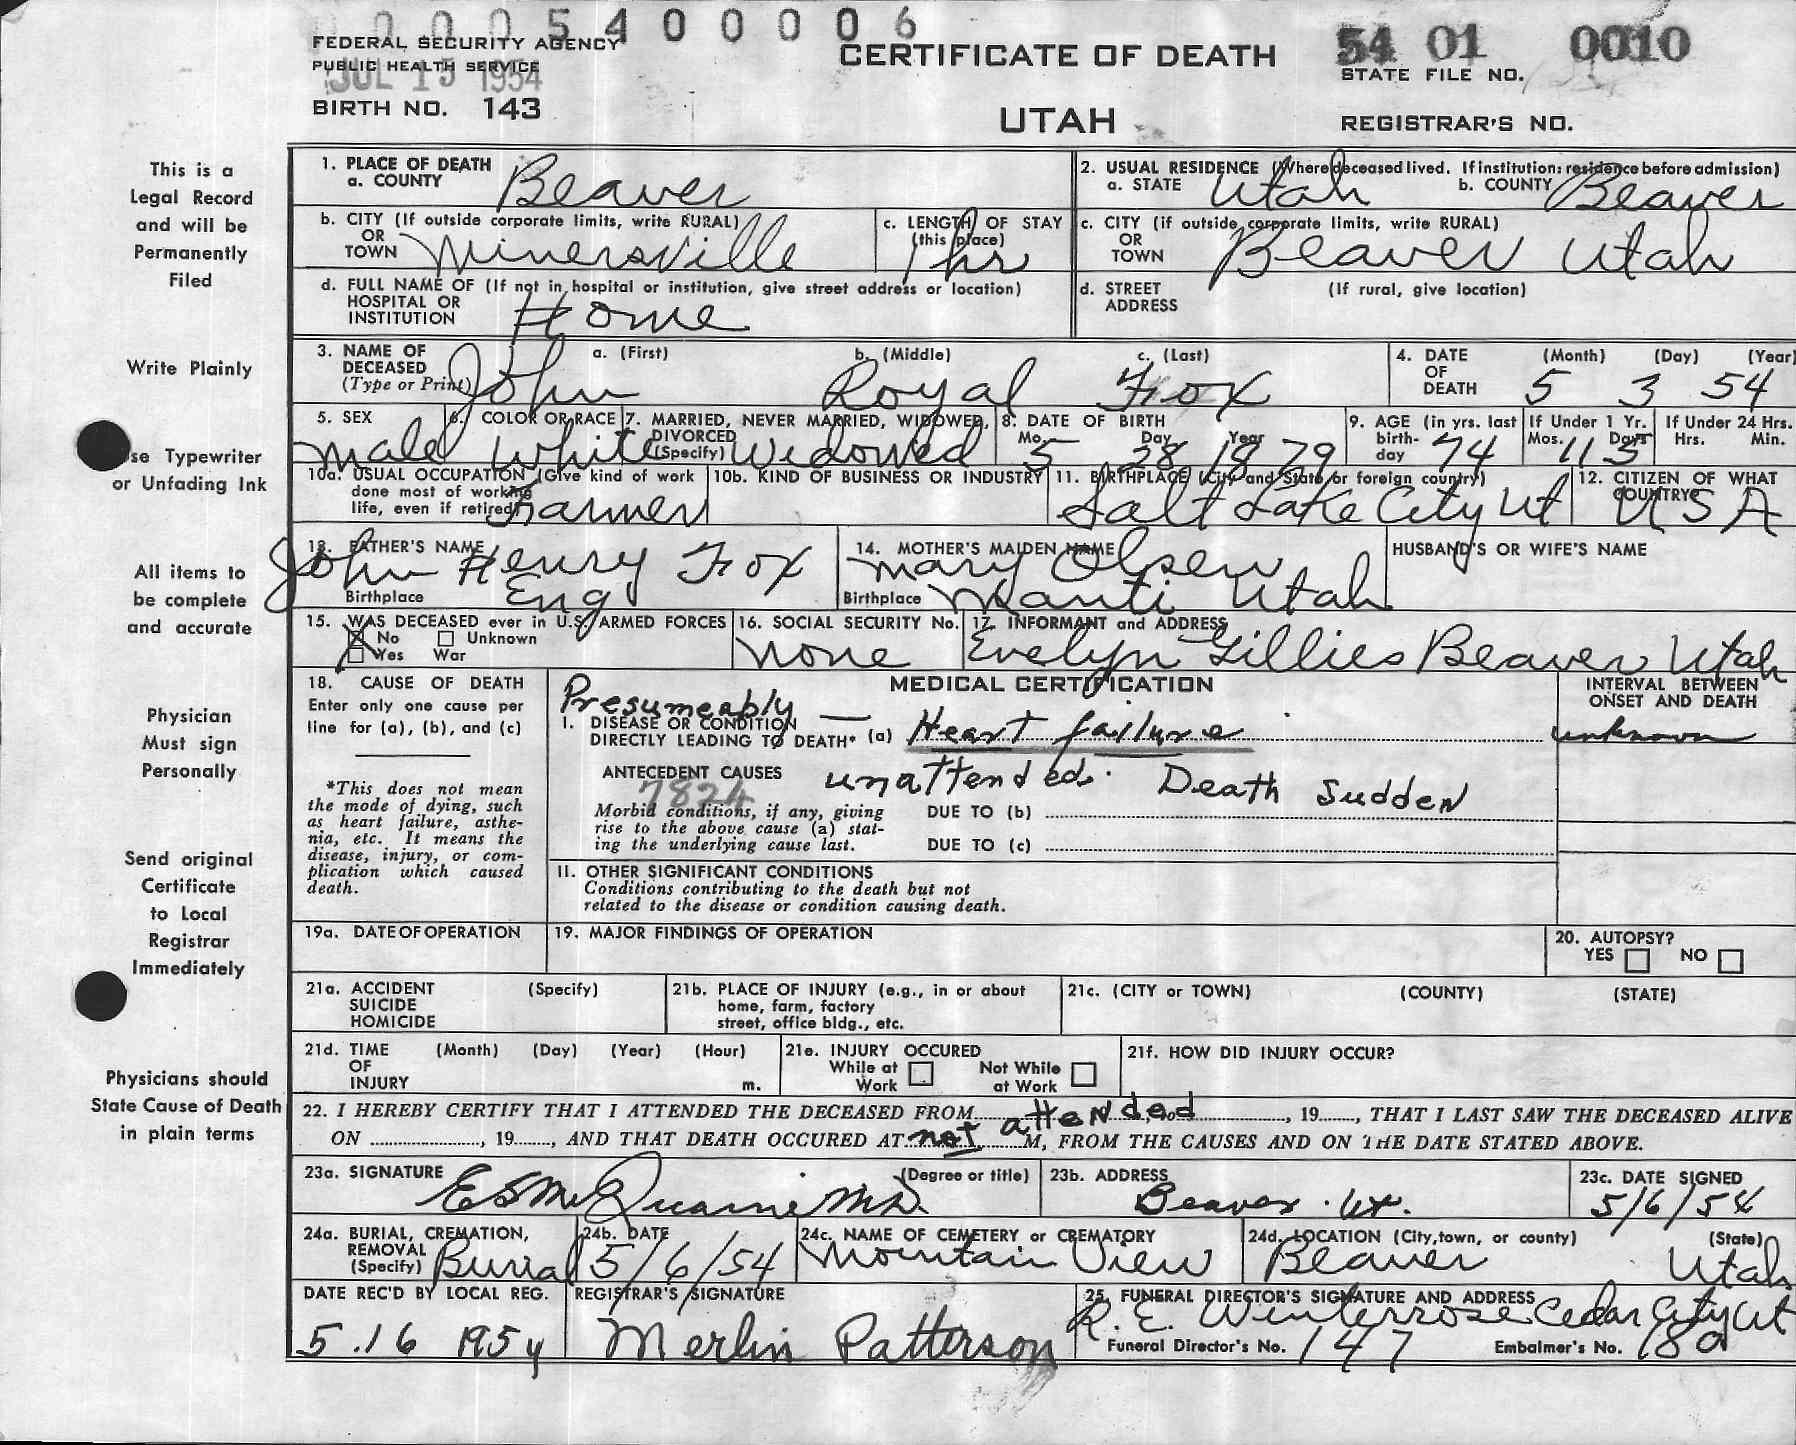 0 0 0 5 4 0 0 0 0 6
FEDERAL SECURITY AGENCY
PUBLIC HEALTH SERVICE
JUL 15 1954
BIRTH NO. 143
CERTIFICATE OF DEATH
UTAH
54 01 0010
STATE FILE NO.
REGISTRAR'S NO.
This is a
Legal Record
and will be
Permanently
Filed
Write Plainly
se Typewriter
or Unfading Ink
All items to
be complete
and accurate
Physician
Must sign
Personally
Send original
Certificate
to Local
Registrar
Immediately
Physicians should
State Cause of Death
in plain terms
1. PLACE OF DEATH
a. COUNTY Beaver
2. USUAL RESIDENCE (Where deceased lived. If institution: residence before admission)
a. STATE Utah b. COUNTY Beaver
b. CITY (If outside corporate limits, write RURAL)
OR
TOWN Minersville
c. LENGTH OF STAY
(this place)
1 hr
c. CITY (if outside corporate limits, write RURAL)
OR
TOWN Beaver Utah
d. FULL NAME OF (If not in hospital or institution, give street address or location)
HOSPITAL OR
INSTITUTION Home
d. STREET (If rural, give location)
ADDRESS
3. NAME OF DECEASED
(Type or Print)
a. (First) b. (Middle) c. (Last)
John Royal Fox
4. DATE OF DEATH
(Month) (Day) (Year)
5 3 54
5. SEX
Male
6. COLOR OR RACE
White
7. MARRIED, NEVER MARRIED, WIDOWED,
DIVORCED
(Specify) Widowed
8. DATE OF BIRTH
Mo. Day Year
5 28 1879
9. AGE (in yrs. last
birth-
day 74
If Under 1 Yr.
Mos. Days
11 5
If Under 24 Hrs.
Hrs. Min.
10a. USUAL OCCUPATION (Give kind of work
done most of working
life, even if retired) Farmer
10b. KIND OF BUSINESS OR INDUSTRY
11. BIRTHPLACE (City and State or foreign country)
Salt Lake City Ut
12. CITIZEN OF WHAT
COUNTRY?
U S A
13. FATHER'S NAME
John Henry Fox
Birthplace Eng
14. MOTHER'S MAIDEN NAME
Mary Olsen
Birthplace Manti Utah
HUSBAND'S OR WIFE'S NAME
15. WAS DECEASED ever in U.S. ARMED FORCES
No Unknown
Yes War
16. SOCIAL SECURITY No.
None
17. INFORMANT and ADDRESS
Evelyn Gillies Beaver Utah
18. CAUSE OF DEATH
Enter only one cause per
line for (a), (b), and (c)
*This does not mean
the mode of dying, such
as heart failure, asthe-
nia, etc. It means the
disease, injury, or com-
plication which caused
death.
MEDICAL CERTIFICATION
Presumeably
I. DISEASE OR CONDITION
DIRECTLY LEADING TO DEATH* (a) Heart failure
INTERVAL BETWEEN
ONSET AND DEATH
unknown
ANTECEDENT CAUSES unattended. Death Sudden
7824
Morbid conditions, if any, giving
rise to the above cause (a) stat-
ing the underlying cause last.
DUE TO (b)
DUE TO (c)
II. OTHER SIGNIFICANT CONDITIONS
Conditions contributing to the death but not
related to the disease or condition causing death.
19a. DATE OF OPERATION
19. MAJOR FINDINGS OF OPERATION
20. AUTOPSY?
YES NO
21a. ACCIDENT (Specify)
SUICIDE
HOMICIDE
21b. PLACE OF INJURY (e.g., in or about
home, farm, factory
street, office bldg., etc.
21c. (CITY or TOWN) (COUNTY) (STATE)
21d. TIME (Month) (Day) (Year) (Hour)
OF
INJURY m.
21e. INJURY OCCURED
While at Work
Not While at Work
21f. HOW DID INJURY OCCUR?
22. I HEREBY CERTIFY THAT I ATTENDED THE DECEASED FROM attended, 19, THAT I LAST SAW THE DECEASED ALIVE
ON , 19, AND THAT DEATH OCCURED AT not M, FROM THE CAUSES AND ON THE DATE STATED ABOVE.
23a. SIGNATURE (Degree or title)
E S McQuarrie M.D.
23b. ADDRESS
Beaver Ut.
23c. DATE SIGNED
5/6/54
24a. BURIAL, CREMATION,
REMOVAL
(Specify) Burial
24b. DATE
5/6/54
24c. NAME OF CEMETERY or CREMATORY
Mountain View
24d. LOCATION (City, town, or county) (State)
Beaver Utah
DATE REC'D BY LOCAL REG.
5.16 1954
REGISTRAR'S SIGNATURE
Merlin Patterson
25. FUNERAL DIRECTOR'S SIGNATURE AND ADDRESS
R. E. Winterrose Cedar City Ut
Funeral Director's No. 147 Embalmer's No. 180